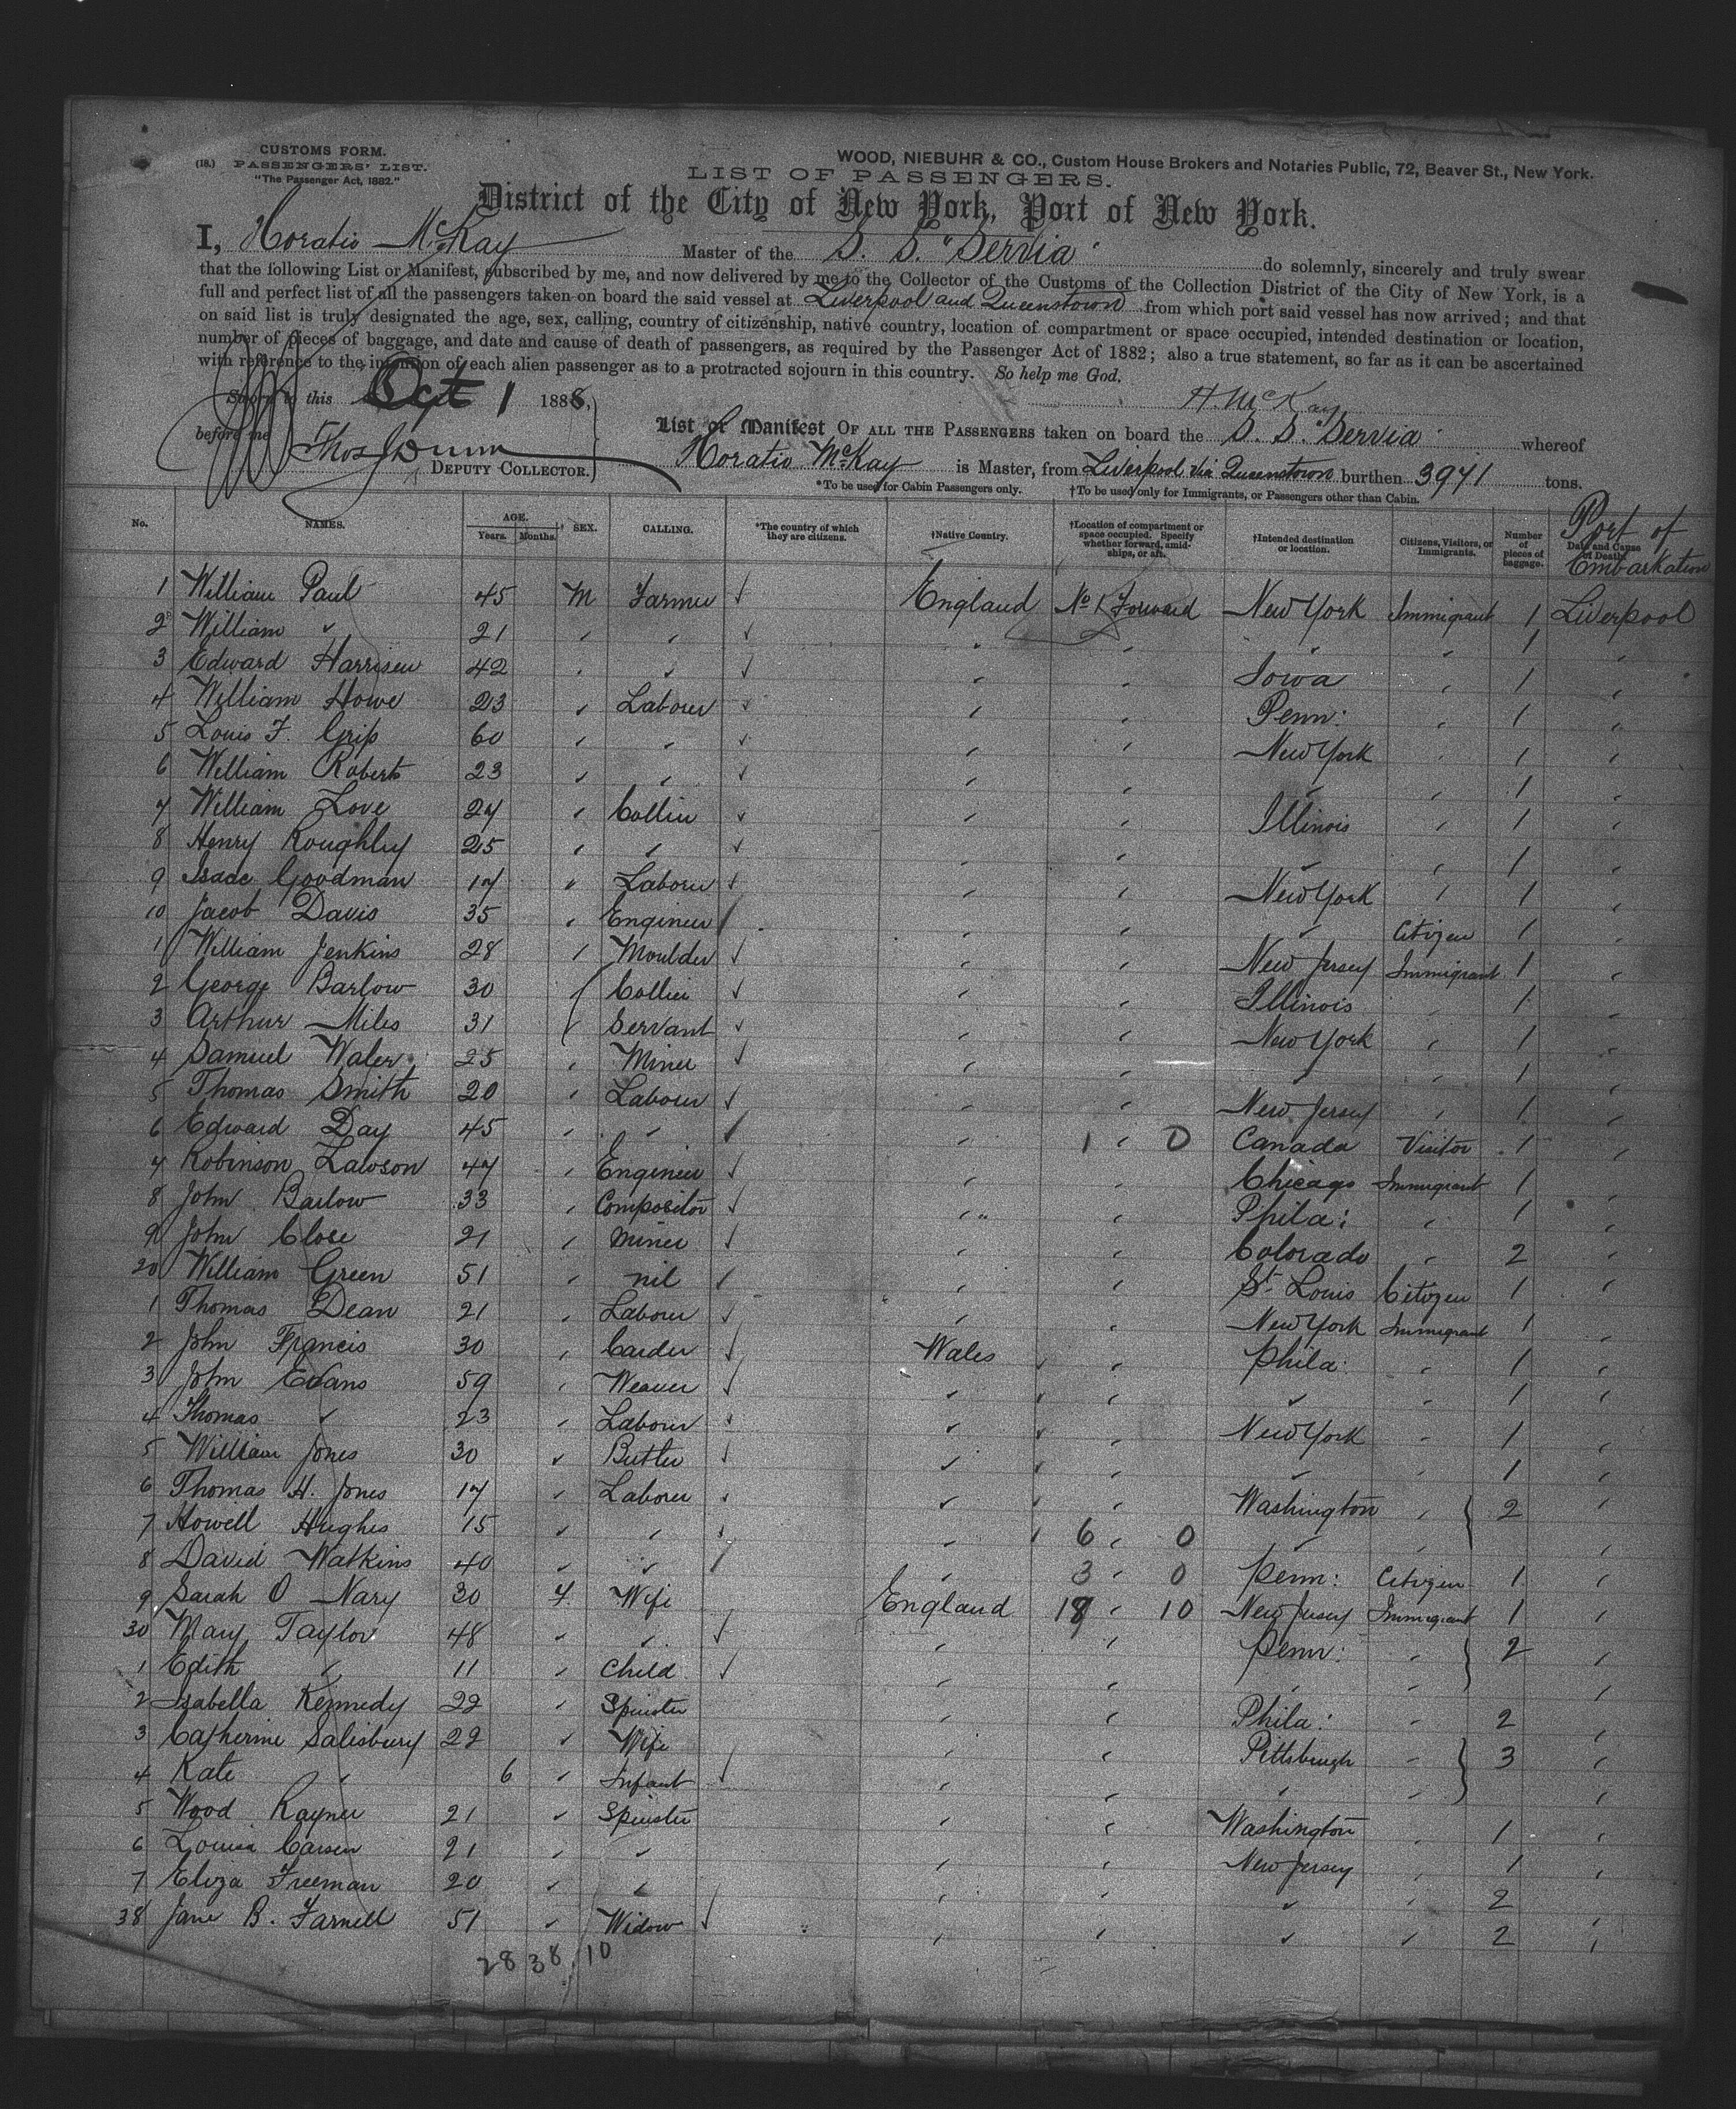 CUSTOMS FORM.
(18.) PASSENGERS' LIST.
"The Passenger Act, 1882."
WOOD, NIEBUHR & CO., Custom House Brokers and Notaries Public, 72, Beaver St., New York.
LIST OF PASSENGERS.
District of the City of New York, Port of New York.
I, Horatio McKay Master of the S. S. "Servia" do solemnly, sincerely and truly swear
that the following List or Manifest, subscribed by me, and now delivered by me to the Collector of the Customs of the Collection District of the City of New York, is a
full and perfect list of all the passengers taken on board the said vessel at Liverpool and Queenstown from which port said vessel has now arrived; and that
on said list is truly designated the age, sex, calling, country of citizenship, native country, location of compartment or space occupied, intended destination or location,
number of pieces of baggage, and date and cause of death of passengers, as required by the Passenger Act of 1882; also a true statement, so far as it can be ascertained
with reference to the intention of each alien passenger as to a protracted sojourn in this country. So help me God.
Sworn to this Oct 1 1888,
H. McKay
before me Thos J Dunn
DEPUTY COLLECTOR.
List or Manifest OF ALL THE PASSENGERS taken on board the S. S. "Servia" whereof
Horatio McKay is Master, from Liverpool via Queenstown burthen 3971 tons.
*To be used for Cabin Passengers only. †To be used only for Immigrants, or Passengers other than Cabin.
No. NAMES. AGE. Years. Months. SEX. CALLING. *The country of which they are citizens. †Native Country. †Location of compartment or space occupied. Specify whether forward, amidships, or aft. †Intended destination or location. Citizens, Visitors, or Immigrants. Number of pieces of baggage. Date and Cause of Death. Port of Embarkation
1 William Paul 45 M Farmer ✓ England No 1 Forward New York Immigrant 1 Liverpool
2 William " 21 " " ✓ " " " " 1 "
3 Edward Harrison 42 " " ✓ " " Iowa " 1 "
4 William Howe 23 " Labourer ✓ " " Penn: " 1 "
5 Louis F. Grip 60 " " ✓ " " New York " 1 "
6 William Roberts 23 " " ✓ " " " " 1 "
7 William Love 27 " Collier ✓ " " Illinois " 1 "
8 Henry Roughley 25 " " ✓ " " " " 1 "
9 Isaac Goodman 17 " Labourer ✓ " " New York " 1 "
10 Jacob Davis 35 " Engineer ✓ " " " Citizen 1 "
1 William Jenkins 28 " Moulder ✓ " " New Jersey Immigrant 1 "
2 George Barlow 30 " Collier ✓ " " Illinois " 1 "
3 Arthur Miles 31 " Servant ✓ " " New York " 1 "
4 Samuel Waler 25 " Miner ✓ " " " " 1 "
5 Thomas Smith 20 " Labourer ✓ " " New Jersey " 1 "
6 Edward Day 45 " " ✓ " 1 " 0 Canada Visitor 1 "
7 Robinson Lawson 47 " Engineer ✓ " " Chicago Immigrant 1 "
8 John Barlow 33 " Compositor ✓ " " Phila: " 1 "
9 John Close 21 " Miner ✓ " " Colorado " 2 "
20 William Green 51 " nil ✓ " " St. Louis Citizen 1 "
1 Thomas Dean 21 " Labourer ✓ " " New York Immigrant 1 "
2 John Francis 30 " Carder ✓ Wales " " Phila: " 1 "
3 John Evans 59 " Weaver ✓ " " " " " 1 "
4 Thomas " 23 " Labourer ✓ " " " New York " 1 "
5 William Jones 30 " Butler ✓ " " " " " 1 "
6 Thomas H. Jones 17 " Labourer ✓ " " " Washington " 2 "
7 Howell Hughes 15 " " ✓ " " 6 " 0 " " "
8 David Watkins 40 " " ✓ " 3 " 0 Penn: Citizen 1 "
9 Sarah O Nary 30 F. Wife England 18 " 10 New Jersey Immigrant 1 "
30 Mary Taylor 48 " " ✓ " " Penn: " 2 "
1 Edith " 11 " Child ✓ " " " " "
2 Isabella Kennedy 22 " Spinster " " Phila: " 2 "
3 Catherine Salisbury 22 " Wife " " Pittsburgh " 3 "
4 Kate " 6 " Infant ✓ " " " " "
5 Wood Rayner 21 " Spinster " " Washington " 1 "
6 Louisa Carsen 21 " " " " New Jersey " 1 "
7 Eliza Freeman 20 " " " " " " 2 "
38 Jane B. Farnell 51 " Widow ✓ " " " " 2 "
28 38 10